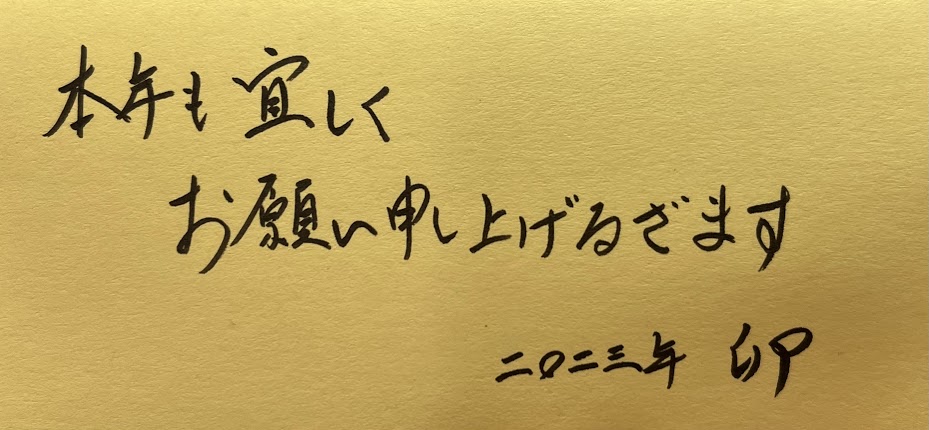 本年も宜しく
お願い申し上げるざます
二〇二三年 卯